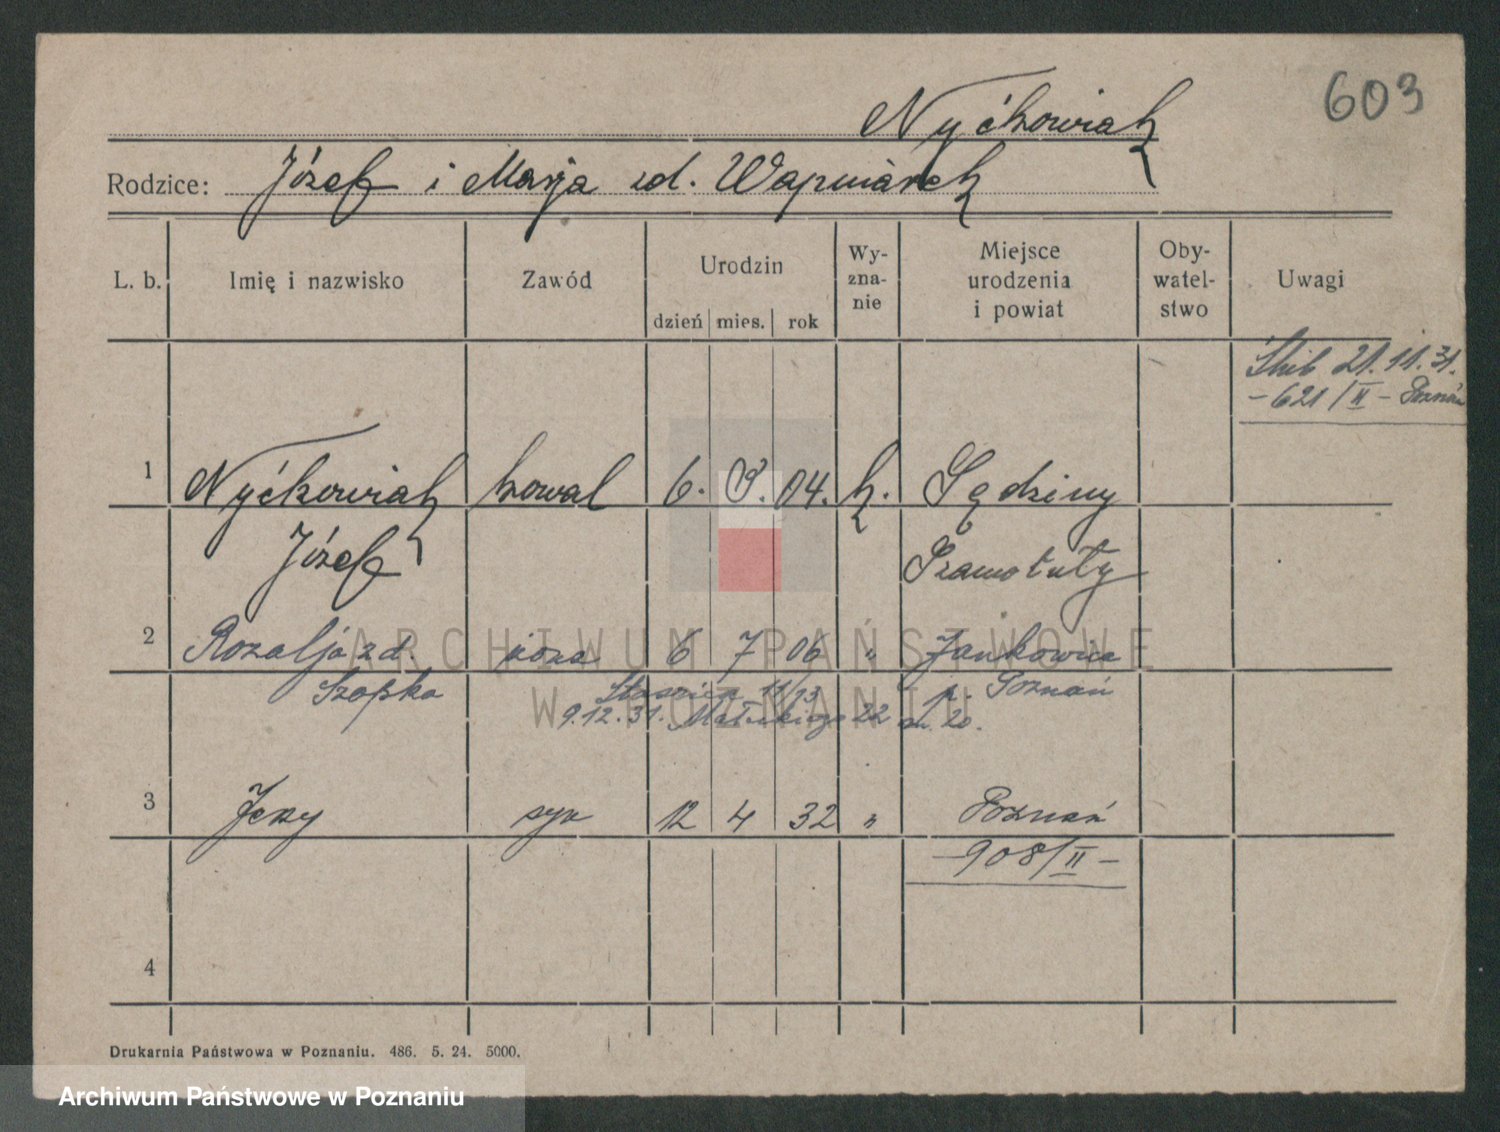 603
Nyćkowiak
Rodzice: Józef i Marja zd. Wapniarek
L. b. Imię i nazwisko Zawód Urodzin Wy-zna-nie Miejsce urodzenia i powiat Oby-watel-stwo Uwagi
dzień mies. rok
Ślub 21.11.31.
–621/II– Poznań
1 Nyćkowiak kowal 6. 04. k. Sędziny
Józef Szamotuły
2 Rozalja zd. żona 6 7 06 " Jankowice
Szopka 11/13 p. Poznań
9.12.31. 22 m. 20.
3 Jerzy syn 12 4 32 " Poznań
–908/II–
4
ARCHIWUM PAŃSTWOWE
W POZNANIU
Drukarnia Państwowa w Poznaniu. 486. 5. 24. 5000.
Archiwum Państwowe w Poznaniu